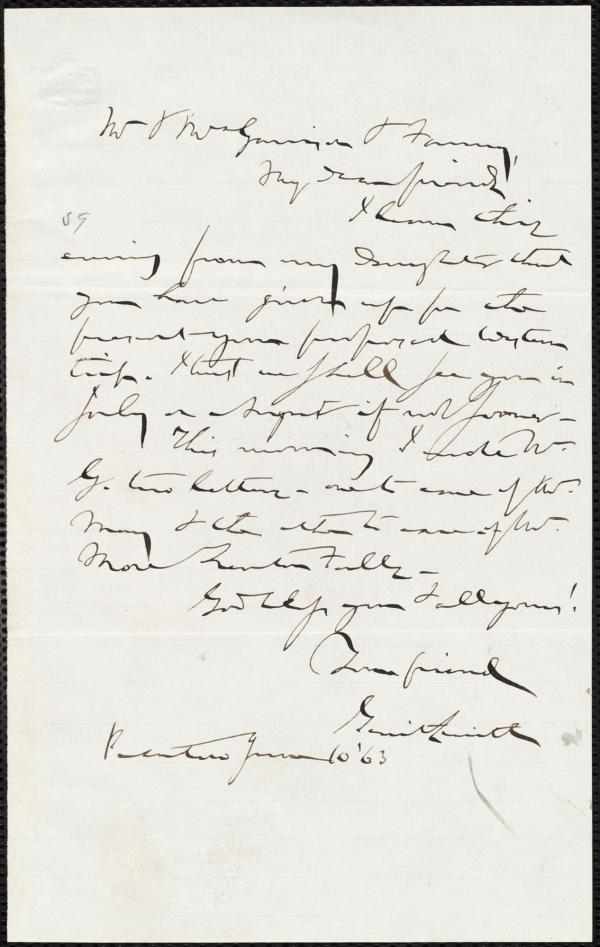 Mr & Mrs Garrison & Fanny,
My dear friends,
I learn this
59
evening from my daughter that
you have given up for the
present your proposed Western
trip. I trust we shall see you in
July or August if not sooner -
This morning I wrote Mr.
G. two letters - one to care of Mr.
May & the other to care of Mr.
More Trenton Falls -
God bless you & all yours!
Your friend
Gerrit Smith
Peterboro June 10 '63